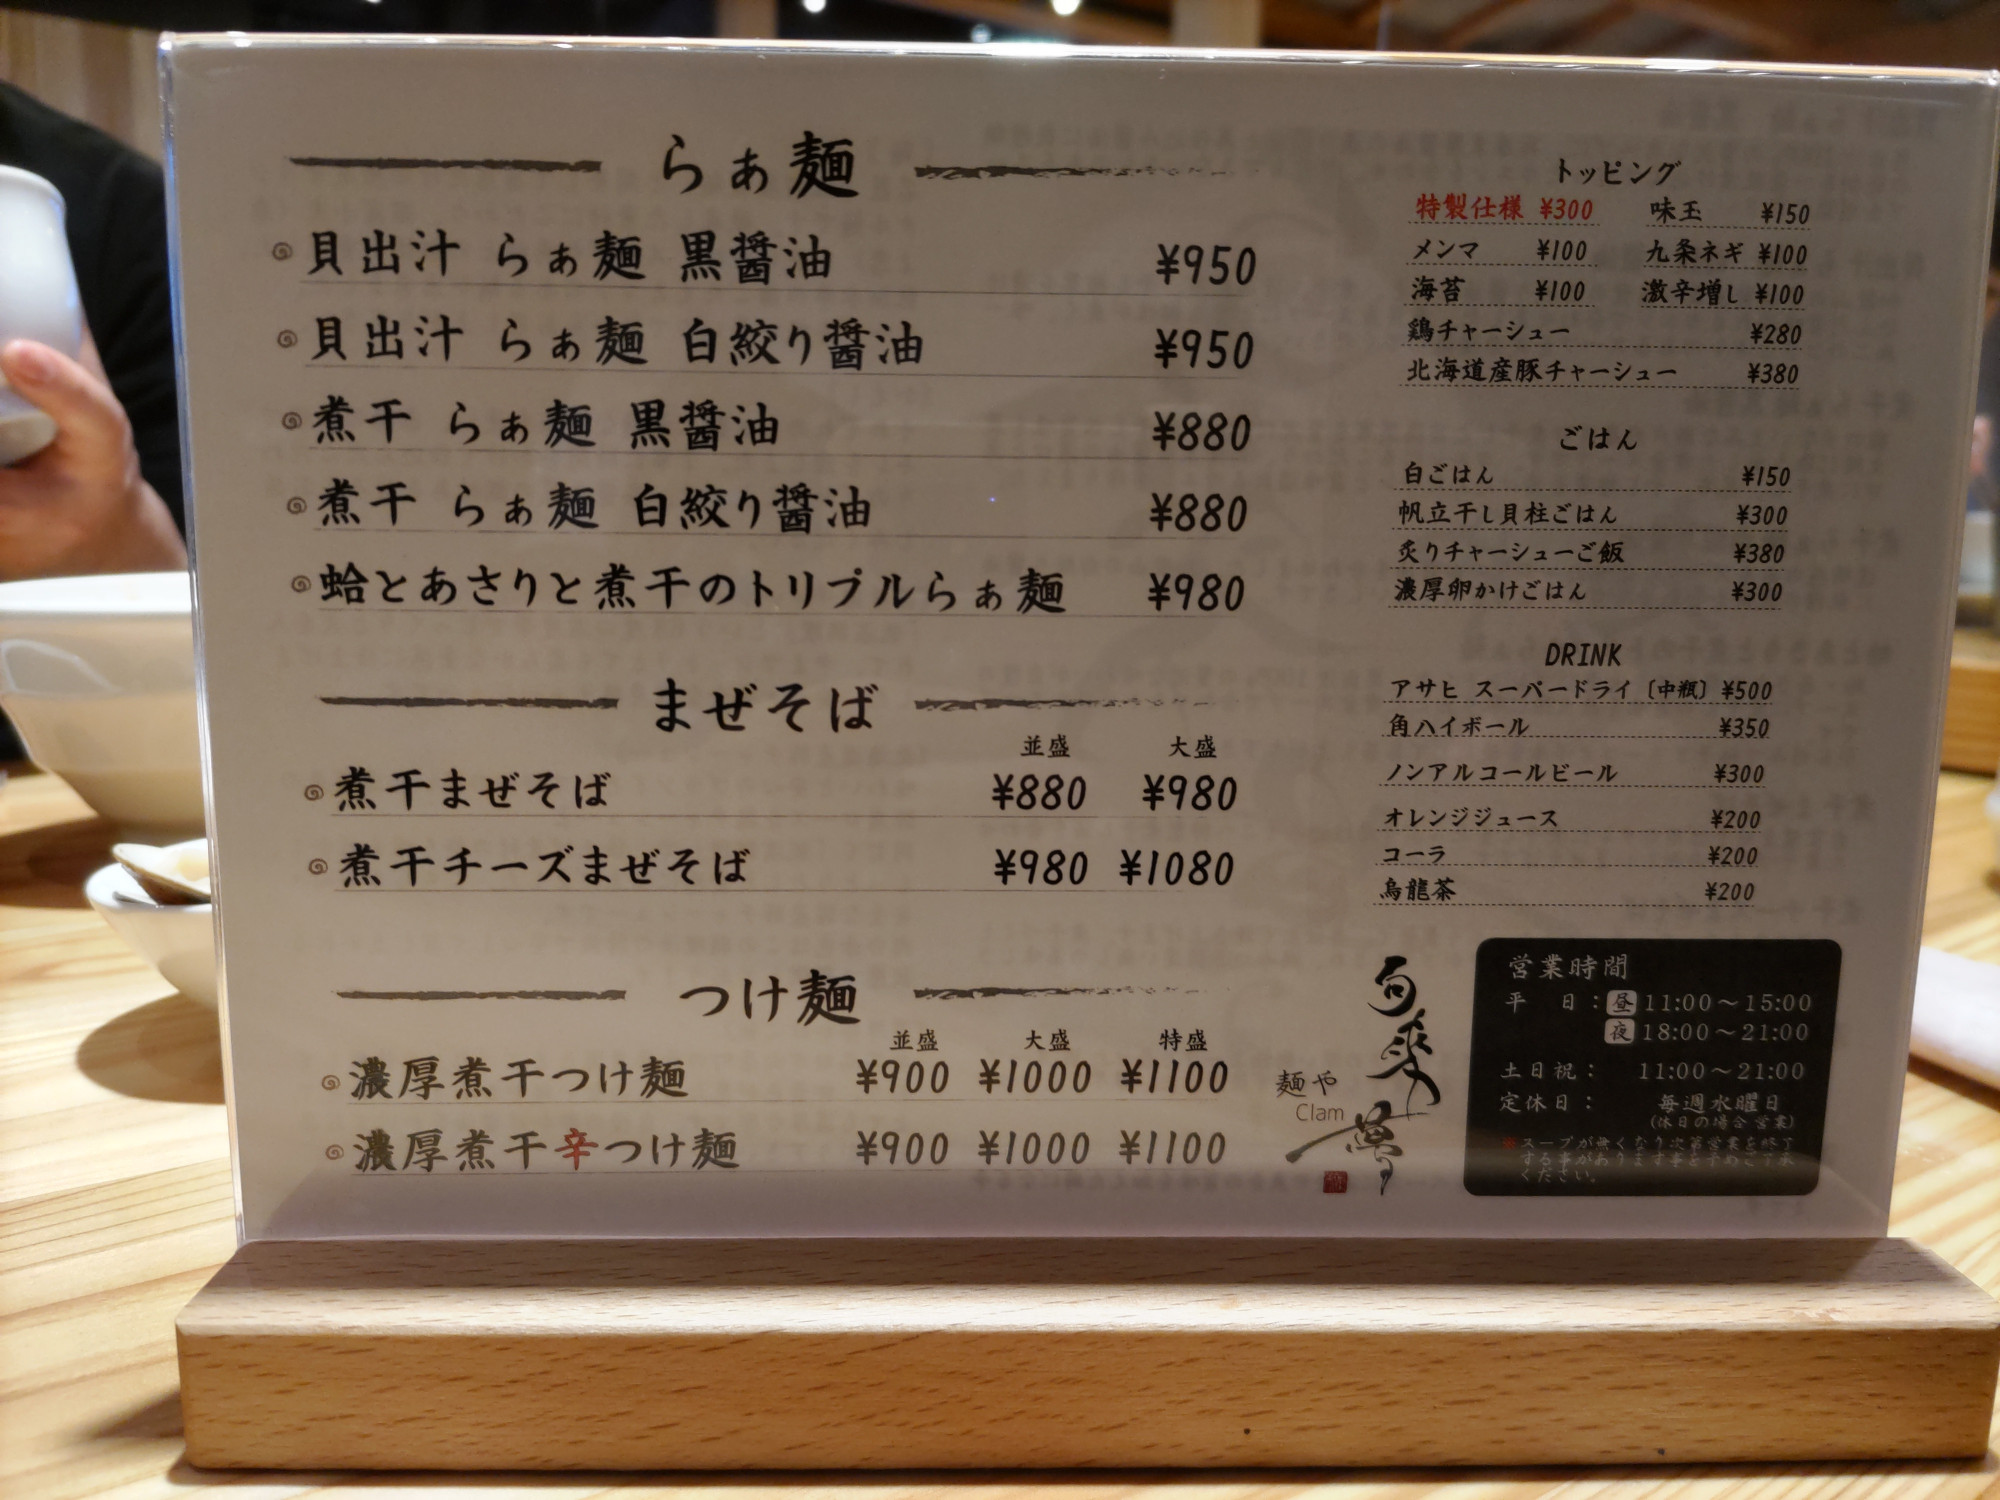 らぁ麺
貝出汁 らぁ麺 黒醤油 ¥950
貝出汁 らぁ麺 白絞り醤油 ¥950
煮干 らぁ麺 黒醤油 ¥880
煮干 らぁ麺 白絞り醤油 ¥880
蛤とあさりと煮干のトリプルらぁ麺 ¥980
まぜそば
並盛 大盛
煮干まぜそば ¥880 ¥980
煮干チーズまぜそば ¥980 ¥1080
つけ麺
並盛 大盛 特盛
濃厚煮干つけ麺 ¥900 ¥1000 ¥1100
濃厚煮干辛つけ麺 ¥900 ¥1000 ¥1100
トッピング
特製仕様 ¥300 味玉 ¥150
メンマ ¥100 九条ネギ ¥100
海苔 ¥100 激辛増し ¥100
鶏チャーシュー ¥280
北海道産豚チャーシュー ¥380
ごはん
白ごはん ¥150
帆立干し貝柱ごはん ¥300
炙りチャーシューご飯 ¥380
濃厚卵かけごはん ¥300
DRINK
アサヒ スーパードライ〔中瓶〕 ¥500
角ハイボール ¥350
ノンアルコールビール ¥300
オレンジジュース ¥200
コーラ ¥200
烏龍茶 ¥200
麺や
Clam
営業時間
平 日：昼 11:00～15:00
夜 18:00～21:00
土日祝： 11:00～21:00
定休日： 毎週水曜日
(休日の場合営業)
※スープが無くなり次第営業を終了
する事があります事を予めご了承
ください。